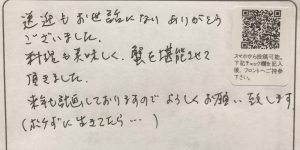 送迎もお世話になりありがとう
ございました。
料理も美味しく、蟹を堪能させて
頂きました。
来年も計画しておりますのでよろしくお願い致します
(ボケずに生きてたら…)
スマホから投稿可能。
下記チェック欄を記入
後、フロントへご持参
下さい。